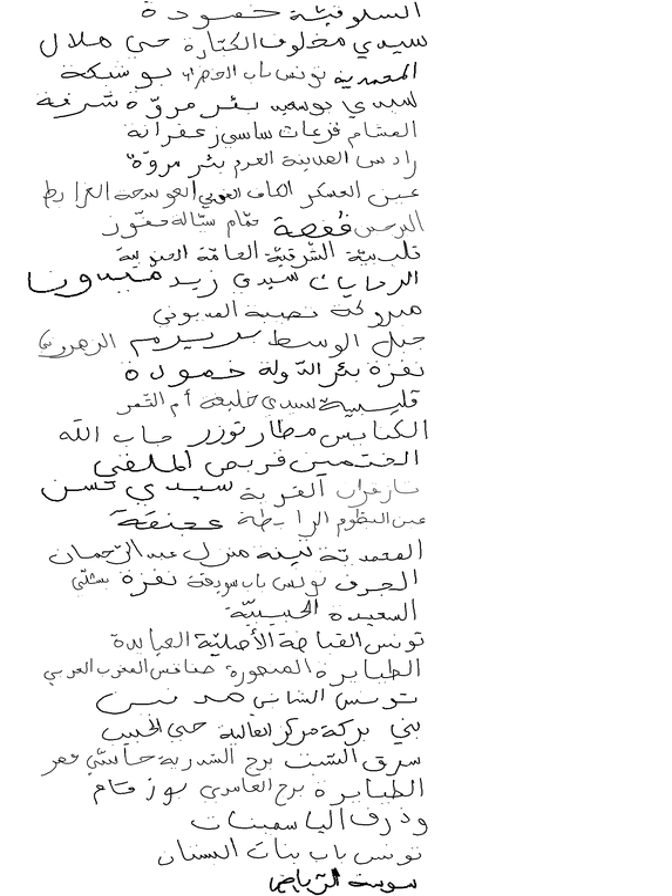 السلوقيّة خمودة
سيدي مخلوف الكتارة حي هلال
المحمدية تونس باب الخضراء بوشبكة
سيدي بوسعيد بئر مروّة شرفة
المشام قزعات ساسي زعفرانة
رادس المدينة العرم بئر مروّة
عين العسكر الكاف الغربي العوسجة الغرابط
الدرجين قفصة حمّام سيّالة معتوز
قليبية الشرقيّة العامّة
الرضايات سيدي زيد
مبروكة نصيبة
جبل الوسط الزهروني
نفزة بئر الدّولة خمودة
قليبية سيدي خليفة أم التمر
الكنايس مطار توزر جاب الله
الختمين قربص الملقى
تازغران القرية سيدي حسن
عين النظوم الرابطة
المحمديّة تينة منزل عبد الرّحمان
الجرف تونس باب سويقة نفزة بشلّي
السعيدة الحبيبيّة
تونس القباضة الأصليّة العبابدة
الطبابرة المنصورة صفاقس المغرب العربي
تونس الشابي مدنين
بني بركة مركز العالية حي الحبيب
سوق السبت برج السدرية حاسّي عمر
الطبايرة برج العامري بوزقام
وذرف الياسمينات
تونس باب بنات البستان
سوسة الرياض